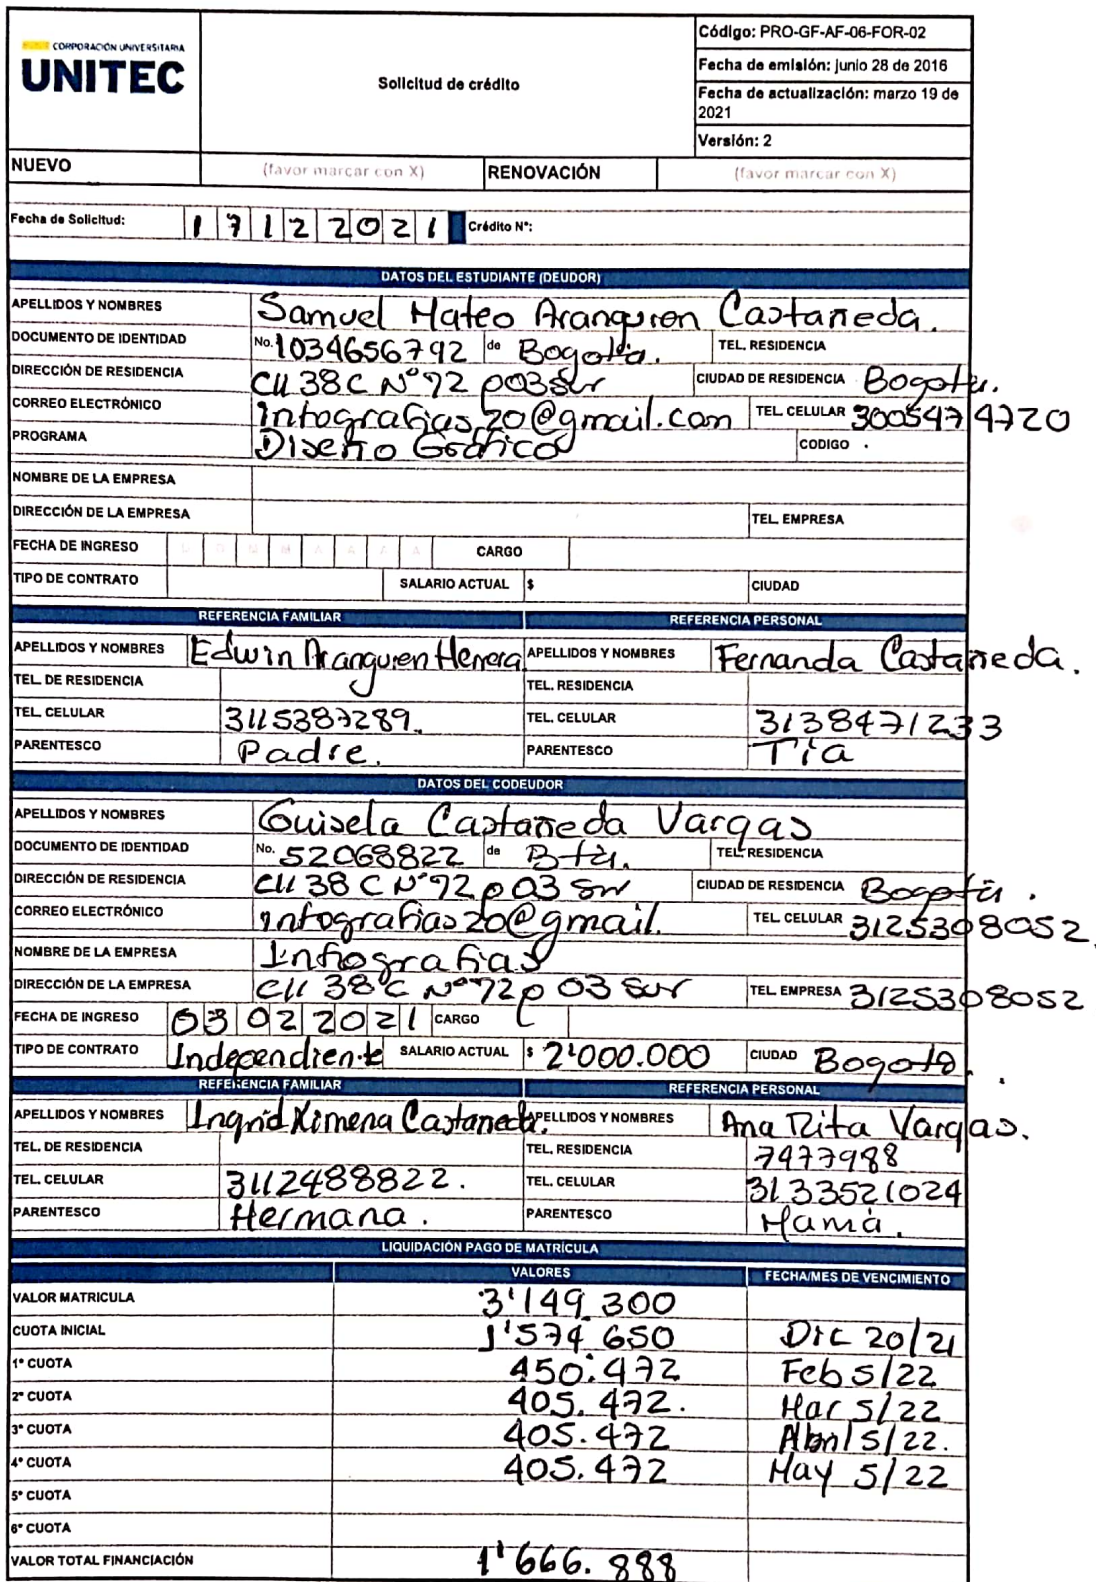 CORPORACIÓN UNIVERSITARIA
UNITEC
Solicitud de crédito
Código: PRO-GF-AF-06-FOR-02
Fecha de emisión: junio 28 de 2016
Fecha de actualización: marzo 19 de
2021
Versión: 2
NUEVO (favor marcar con X) RENOVACIÓN (favor marcar con X)
Fecha de Solicitud: 1 7 1 2 2 0 2 1 Crédito N°:
DATOS DEL ESTUDIANTE (DEUDOR)
APELLIDOS Y NOMBRES Samuel Mateo Aranguren Castañeda.
DOCUMENTO DE IDENTIDAD No. 1034656792 de Bogotá. TEL. RESIDENCIA
DIRECCIÓN DE RESIDENCIA Cll 38 C N° 72 p03 Sur CIUDAD DE RESIDENCIA Bogotá.
CORREO ELECTRÓNICO infografias.20@gmail.com TEL. CELULAR 3005474720
PROGRAMA Diseño Gráfico CODIGO .
NOMBRE DE LA EMPRESA
DIRECCIÓN DE LA EMPRESA TEL. EMPRESA
FECHA DE INGRESO D D M M A A A A CARGO
TIPO DE CONTRATO SALARIO ACTUAL $ CIUDAD
REFERENCIA FAMILIAR REFERENCIA PERSONAL
APELLIDOS Y NOMBRES Edwin Aranguren Herrera APELLIDOS Y NOMBRES Fernanda Castañeda.
TEL. DE RESIDENCIA TEL. RESIDENCIA
TEL. CELULAR 3115387289. TEL. CELULAR 3138471233
PARENTESCO Padre. PARENTESCO Tía
DATOS DEL CODEUDOR
APELLIDOS Y NOMBRES Guisela Castañeda Vargas
DOCUMENTO DE IDENTIDAD No. 52068822 de Btá. TEL. RESIDENCIA
DIRECCIÓN DE RESIDENCIA Cll 38 C N° 72 p 03 Sur CIUDAD DE RESIDENCIA Bogotá.
CORREO ELECTRÓNICO infografias20@gmail. TEL. CELULAR 3125308052.
NOMBRE DE LA EMPRESA Infografias
DIRECCIÓN DE LA EMPRESA Cll 38 C N° 72 p 03 Sur TEL. EMPRESA 3125308052
FECHA DE INGRESO 03 02 2021 CARGO
TIPO DE CONTRATO Independiente SALARIO ACTUAL $ 2'000.000 CIUDAD Bogotá.
REFERENCIA FAMILIAR REFERENCIA PERSONAL
APELLIDOS Y NOMBRES Ingrid Ximena Castañeda. APELLIDOS Y NOMBRES Ana Rita Vargas.
TEL. DE RESIDENCIA TEL. RESIDENCIA 7477988
TEL. CELULAR 3112488822. TEL. CELULAR 3133521024
PARENTESCO Hermana. PARENTESCO Mamá.
LIQUIDACIÓN PAGO DE MATRÍCULA
VALORES FECHA/MES DE VENCIMIENTO
VALOR MATRICULA 3'149.300
CUOTA INICIAL 1'574.650 Dic 20/21
1ª CUOTA 450.472 Feb 5/22
2ª CUOTA 405.472. Mar 5/22
3ª CUOTA 405.472 Abril 5/22.
4ª CUOTA 405.472 May 5/22
5ª CUOTA
6ª CUOTA
VALOR TOTAL FINANCIACIÓN 1'666.888